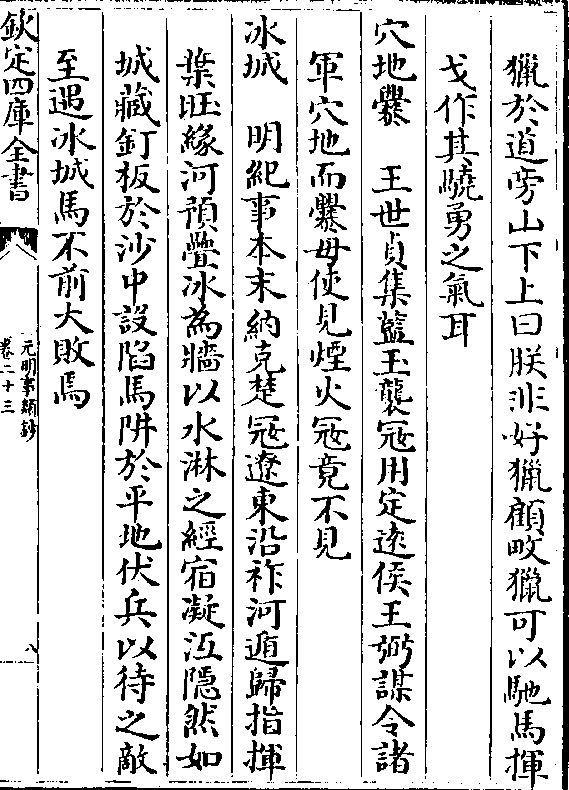 獵於道旁山下上曰朕非好獵顧畋獵可以馳馬揮
戈作其驍勇之氣耳
穴地爨　王世貞集藍玉襲寇用定逺侯王弼謀令諸
軍穴地而爨毋使見煙火寇竟不見
冰城　明紀事本末納克楚寇遼東沿祚河遁歸指揮
葉旺緣河預疊冰為牆以水淋之經宿凝沍隱然如
城藏釘板於沙中設陷馬阱於平地伏兵以待之敵
至遇冰城馬不前大敗焉
欽定四庫全書
元明事類鈔
卷二十三
八